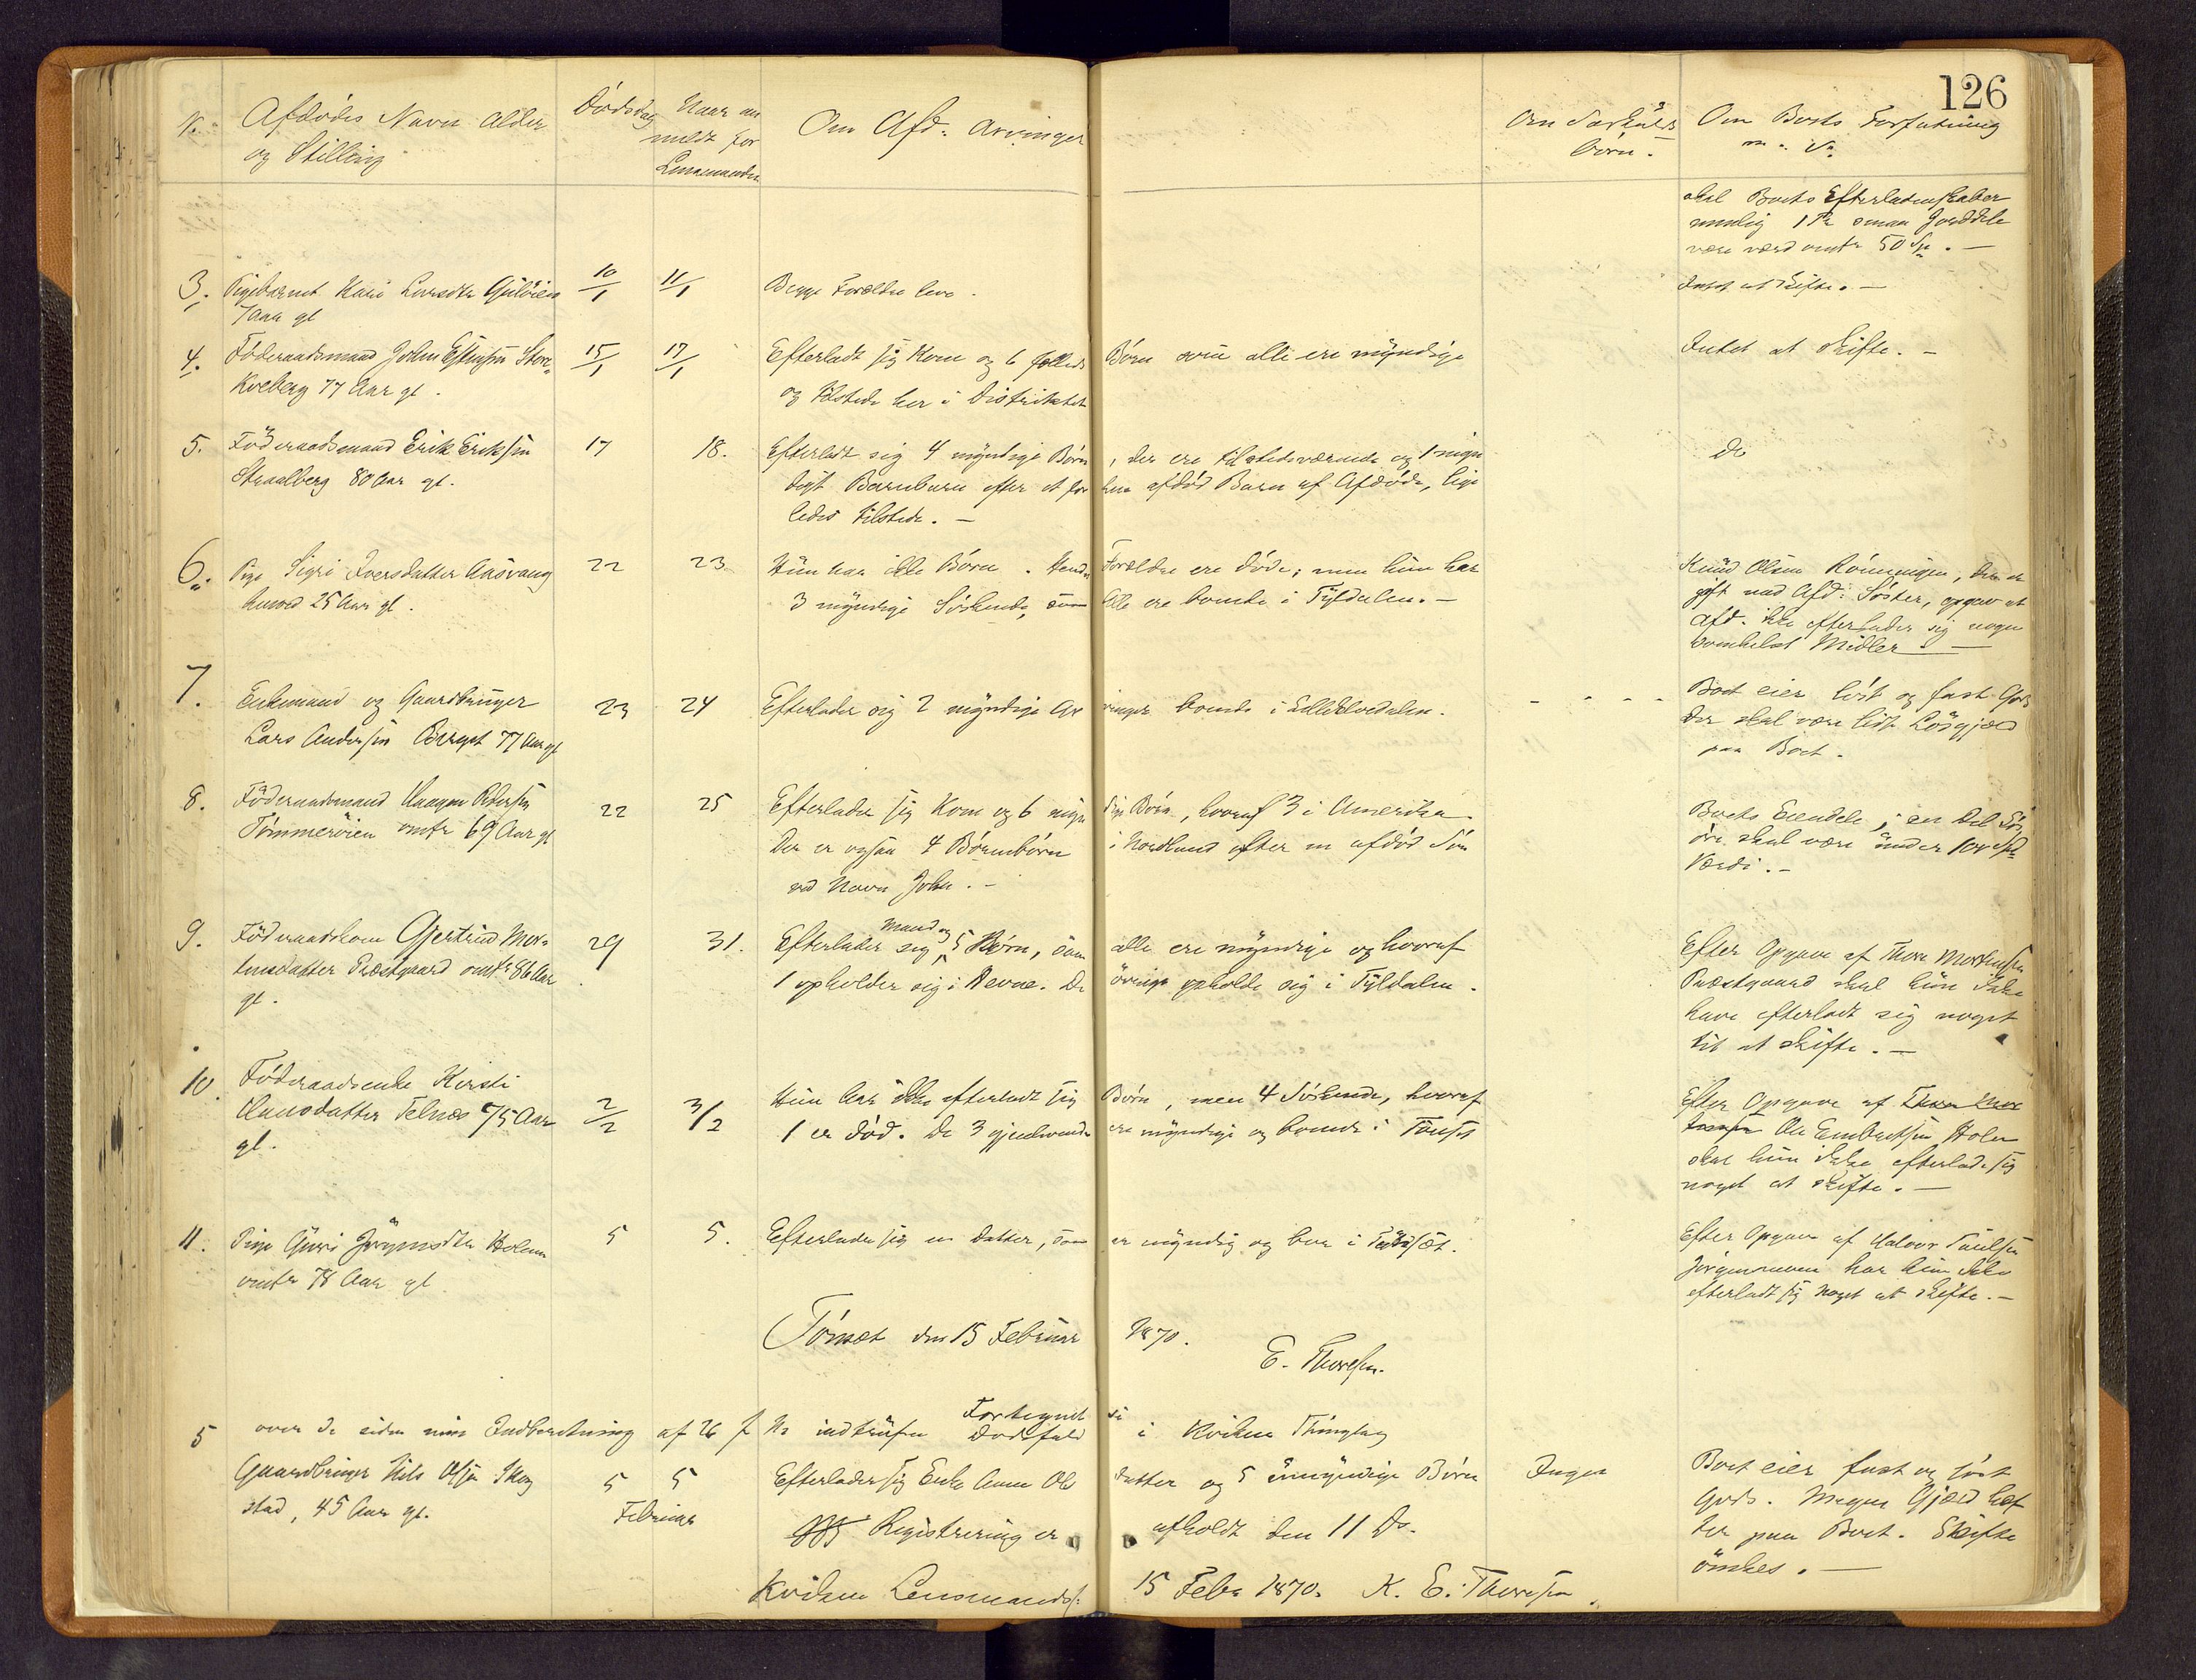 126
N. Afdødes Navn Alder
og Stilling
Dødsdag
Naar an
meldt for
Lensmanden
Om Afd: Arvinger
Om Særkulds
børn.
Om Boets Forfatning
m. v.
skal Boets Efterladenskaber
nemlig 1 smaa Jorddele
være værd omtr 50 Sp. —
3. Pigebarnet Kari Larsdtr Gulöien
7 Aar gl
10/1 11/1 Begge Forældre leve.
Intet at skifte. —
4. Föderaadsmand John Estensen Store
Kveberg 77 Aar gl.
15/1 17/1 Efterladt sig Kone og 6 fælleds Börn som alle ere myndige
og tilstede her i Distriktet
Intet at skifte. —
5. Föderaadsmand Erik Eriksen
Straalberg 80 Aar gl.
17 18. Efterladt sig 4 myndige Börn, der ere tilstedeværende og 1 myn
digt Barnebarn efter et før hen afdöd Barn af Afdöde, lige
ledes tilstede. —
do
6. Pige Sigri Iversdatter Aasvang
25 Aar gl.
22 23 Hun har ikke Börn. Hendes Forældre ere döde; men hun har
3 myndige Söskende, som alle ere boende i Tyldalen. —
Knud Olsen Rönningen, der er
gift med Afd: Söster, opgav at
Afd. ikke efterlader sig nogen
somhelst Midler —
7. Enkemand og Gaardbruger
Lars Andersen Berget 77 Aar gl
23 24 Efterlader sig 2 myndige Ar vinger boende i Lille Elvedalen.
- - - -
Boet eier löst og fast Gods
der skal være lidt Lösgjæld
paa Boet.
8. Föderaadsmand Haagen Pedersen
Tömmeröien omtr 69 Aar gl
22 25 Efterlader sig Kone og 6 myn dige Börn, hvoraf 3 i Amerika.
Der er ogsaa 4 Börnebörn i Nordland efter en afdöd Sön
ved Navn John. —
Boets Eiendele, en Del Lös
öre skal være under 100 Spd
Værdi. —
9. Föderaadskone Gjertrud Mor-
tensdatter Præstgaard omtr 86 Aar
gl.
29 31. Efterlader sig Mand og 5 Börn, som alle ere myndige og hvoraf
1 opholder sig i Hevne. De övrige opholde sig i Tyldalen.
Efter Opgave af Thore Mortensen
Præstgaard skal hun ikke
have efterladt sig noget
til at skifte. —
10. Föderaadsenke Kirsti
Hansdatter Telnæs 75 Aar
gl.
2/2 3/2 Hun har ikke efterladt sig Börn, men 4 Söskende, hvoraf
1 er död. De 3 gjenlevende ere myndige og boende i Tönset
Efter Opgave af Thore Mor
tensen Ole Embretsen Holen
skal hun ikke efterlade sig
noget at skifte. —
11. Pige Guri Jörgensdtr Holen
omtr 78 Aar gl
5 5. Efterlader sig en Datter, som er myndig og bor i
Efter Opgave af Halvor Paulsen
Jörgenmoen har hun ikke
efterladt sig noget at skifte. —
Tönset den 15 Februar 1870.
E. Thoresen.
Fortegnelse
over de siden min Indberetning af 26 f. M. indtrufne Dödsfald i Kvikne Thinglag
5 Gaardbruger Nils Olsen Skog
stad, 45 Aar gl.
5 5
Februar
Efterlader sig Enke Anne Ols datter og 5 umyndige Börn
Registrering er afholdt den 11 Ds.
Ingen
Boet eier fast og löst
Gods. Megen Gjæld hef
ter paa Boet. Skifte
önskes. —
Kvikne Lensmandsf. 15 Febr 1870. K. E. Thoresen.